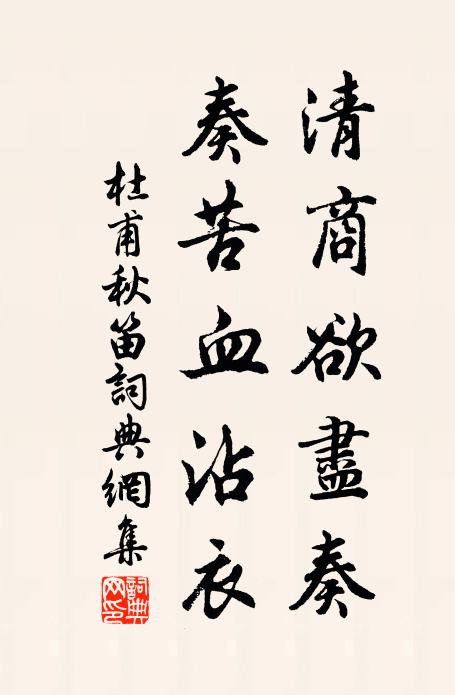 清商欲盡奏
奏苦血沾衣
杜甫秋笛詞典網集
詞典网印